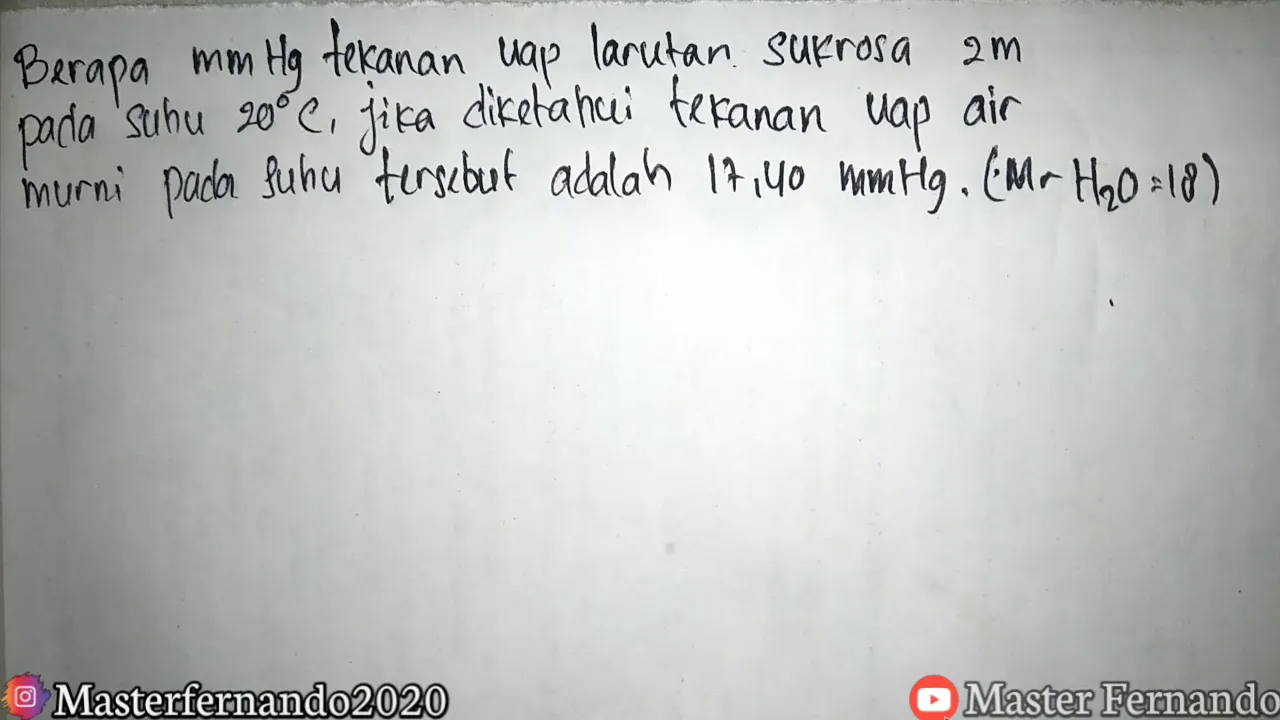 Berapa mmHg tekanan uap larutan sukrosa 2m
pada suhu 20°C, jika diketahui tekanan uap air
murni pada suhu tersebut adalah 17,40 mmHg. (Mr H₂O = 18)
Masterfernando2020
Master Fernando